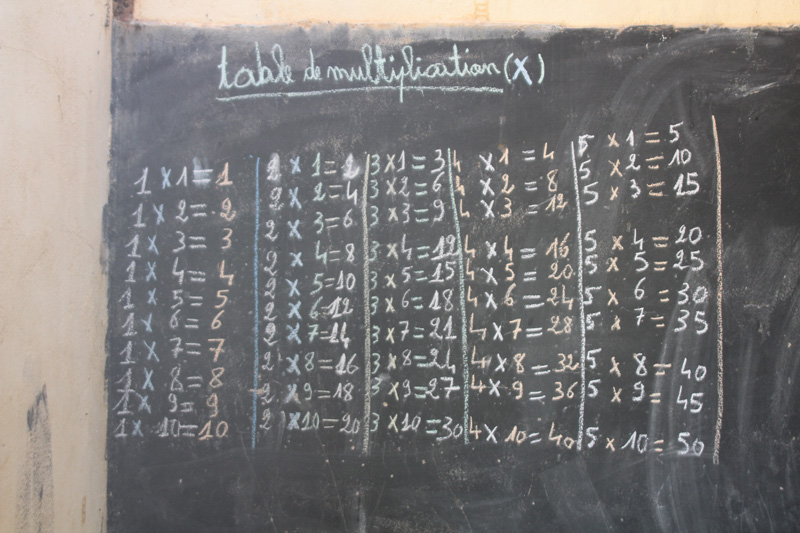 table de multiplication (X)
1 x 1 = 1
1 x 2 = 2
1 x 3 = 3
1 x 4 = 4
1 x 5 = 5
1 x 6 = 6
1 x 7 = 7
1 x 8 = 8
1 x 9 = 9
1 x 10 = 10
2 x 1 = 2
2 x 2 = 4
2 x 3 = 6
2 x 4 = 8
2 x 5 = 10
2 x 6 = 12
2 x 7 = 14
2 x 8 = 16
2 x 9 = 18
2 x 10 = 20
3 x 1 = 3
3 x 2 = 6
3 x 3 = 9
3 x 4 = 12
3 x 5 = 15
3 x 6 = 18
3 x 7 = 21
3 x 8 = 24
3 x 9 = 27
3 x 10 = 30
4 x 1 = 4
4 x 2 = 8
4 x 3 = 12
4 x 4 = 16
4 x 5 = 20
4 x 6 = 24
4 x 7 = 28
4 x 8 = 32
4 x 9 = 36
4 x 10 = 40
5 x 1 = 5
5 x 2 = 10
5 x 3 = 15
5 x 4 = 20
5 x 5 = 25
5 x 6 = 30
5 x 7 = 35
5 x 8 = 40
5 x 9 = 45
5 x 10 = 50